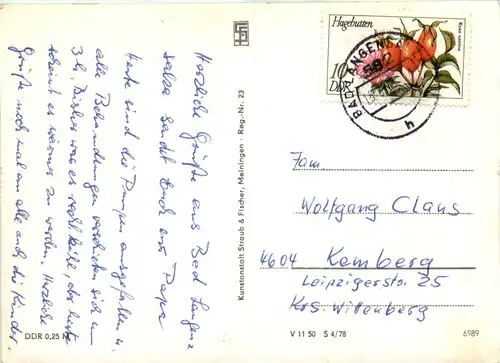 Herzliche Grüße aus Bad Langen-
salza sendet Euch Papa
Heute sind die Pumpen ausgefallen u.
alle Behandlungen verschieben sich um
3 h. Bisher war es recht kühl, aber heute
scheint es wärmer zu werden. Herzliche
Grüße noch mal an alle auch die Kinder.
DDR 0,25 M
Kunstanstalt Straub & Fischer, Meiningen · Reg.-Nr. 23
Hagebutten
Rosa canina
10
DDR
BAD LANGENSALZA
h
Fam.
Wolfgang Claus
4604 Kemberg
Leipzigerstr. 25
Krs. Wittenberg
V 11 50 S 4/78
6989